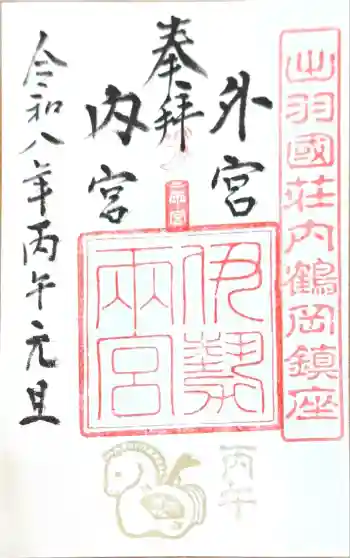 出羽國荘内鶴岡鎮座
外宮
奉拝
内宮
令和八年丙午元旦
伊勢
兩宮
丙午